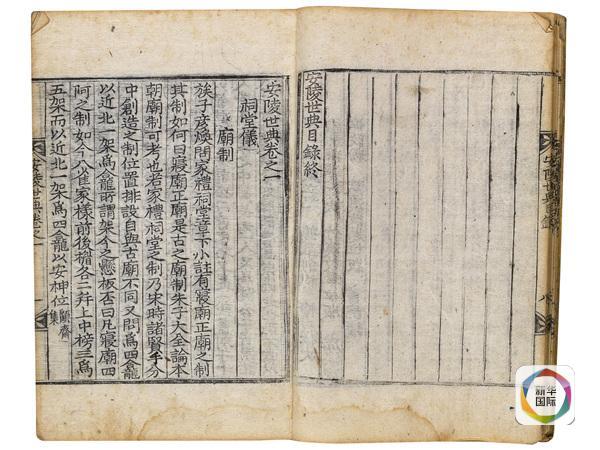 安陵世典目錄
八
安陵世典目錄終
安陵世典卷之一
祠堂儀
廟制
族子彦煥問家禮祠堂章下小註有寢廟正廟之制
其制如何曰寢廟正廟是古之廟制朱子大全論本
朝廟制可考也若家禮祠堂之制乃宋時諸賢手分
中創造之制位置排設自與古廟不同又問爲四龕
以近北一架爲龕所謂架今之懸板否曰凡寢廟四
阿之制如今八雀家樣前後各二幷上中榜三爲
五架而以近北一架爲四龕以安神位顧齋集
安陵世典卷之一
一
新华
国际